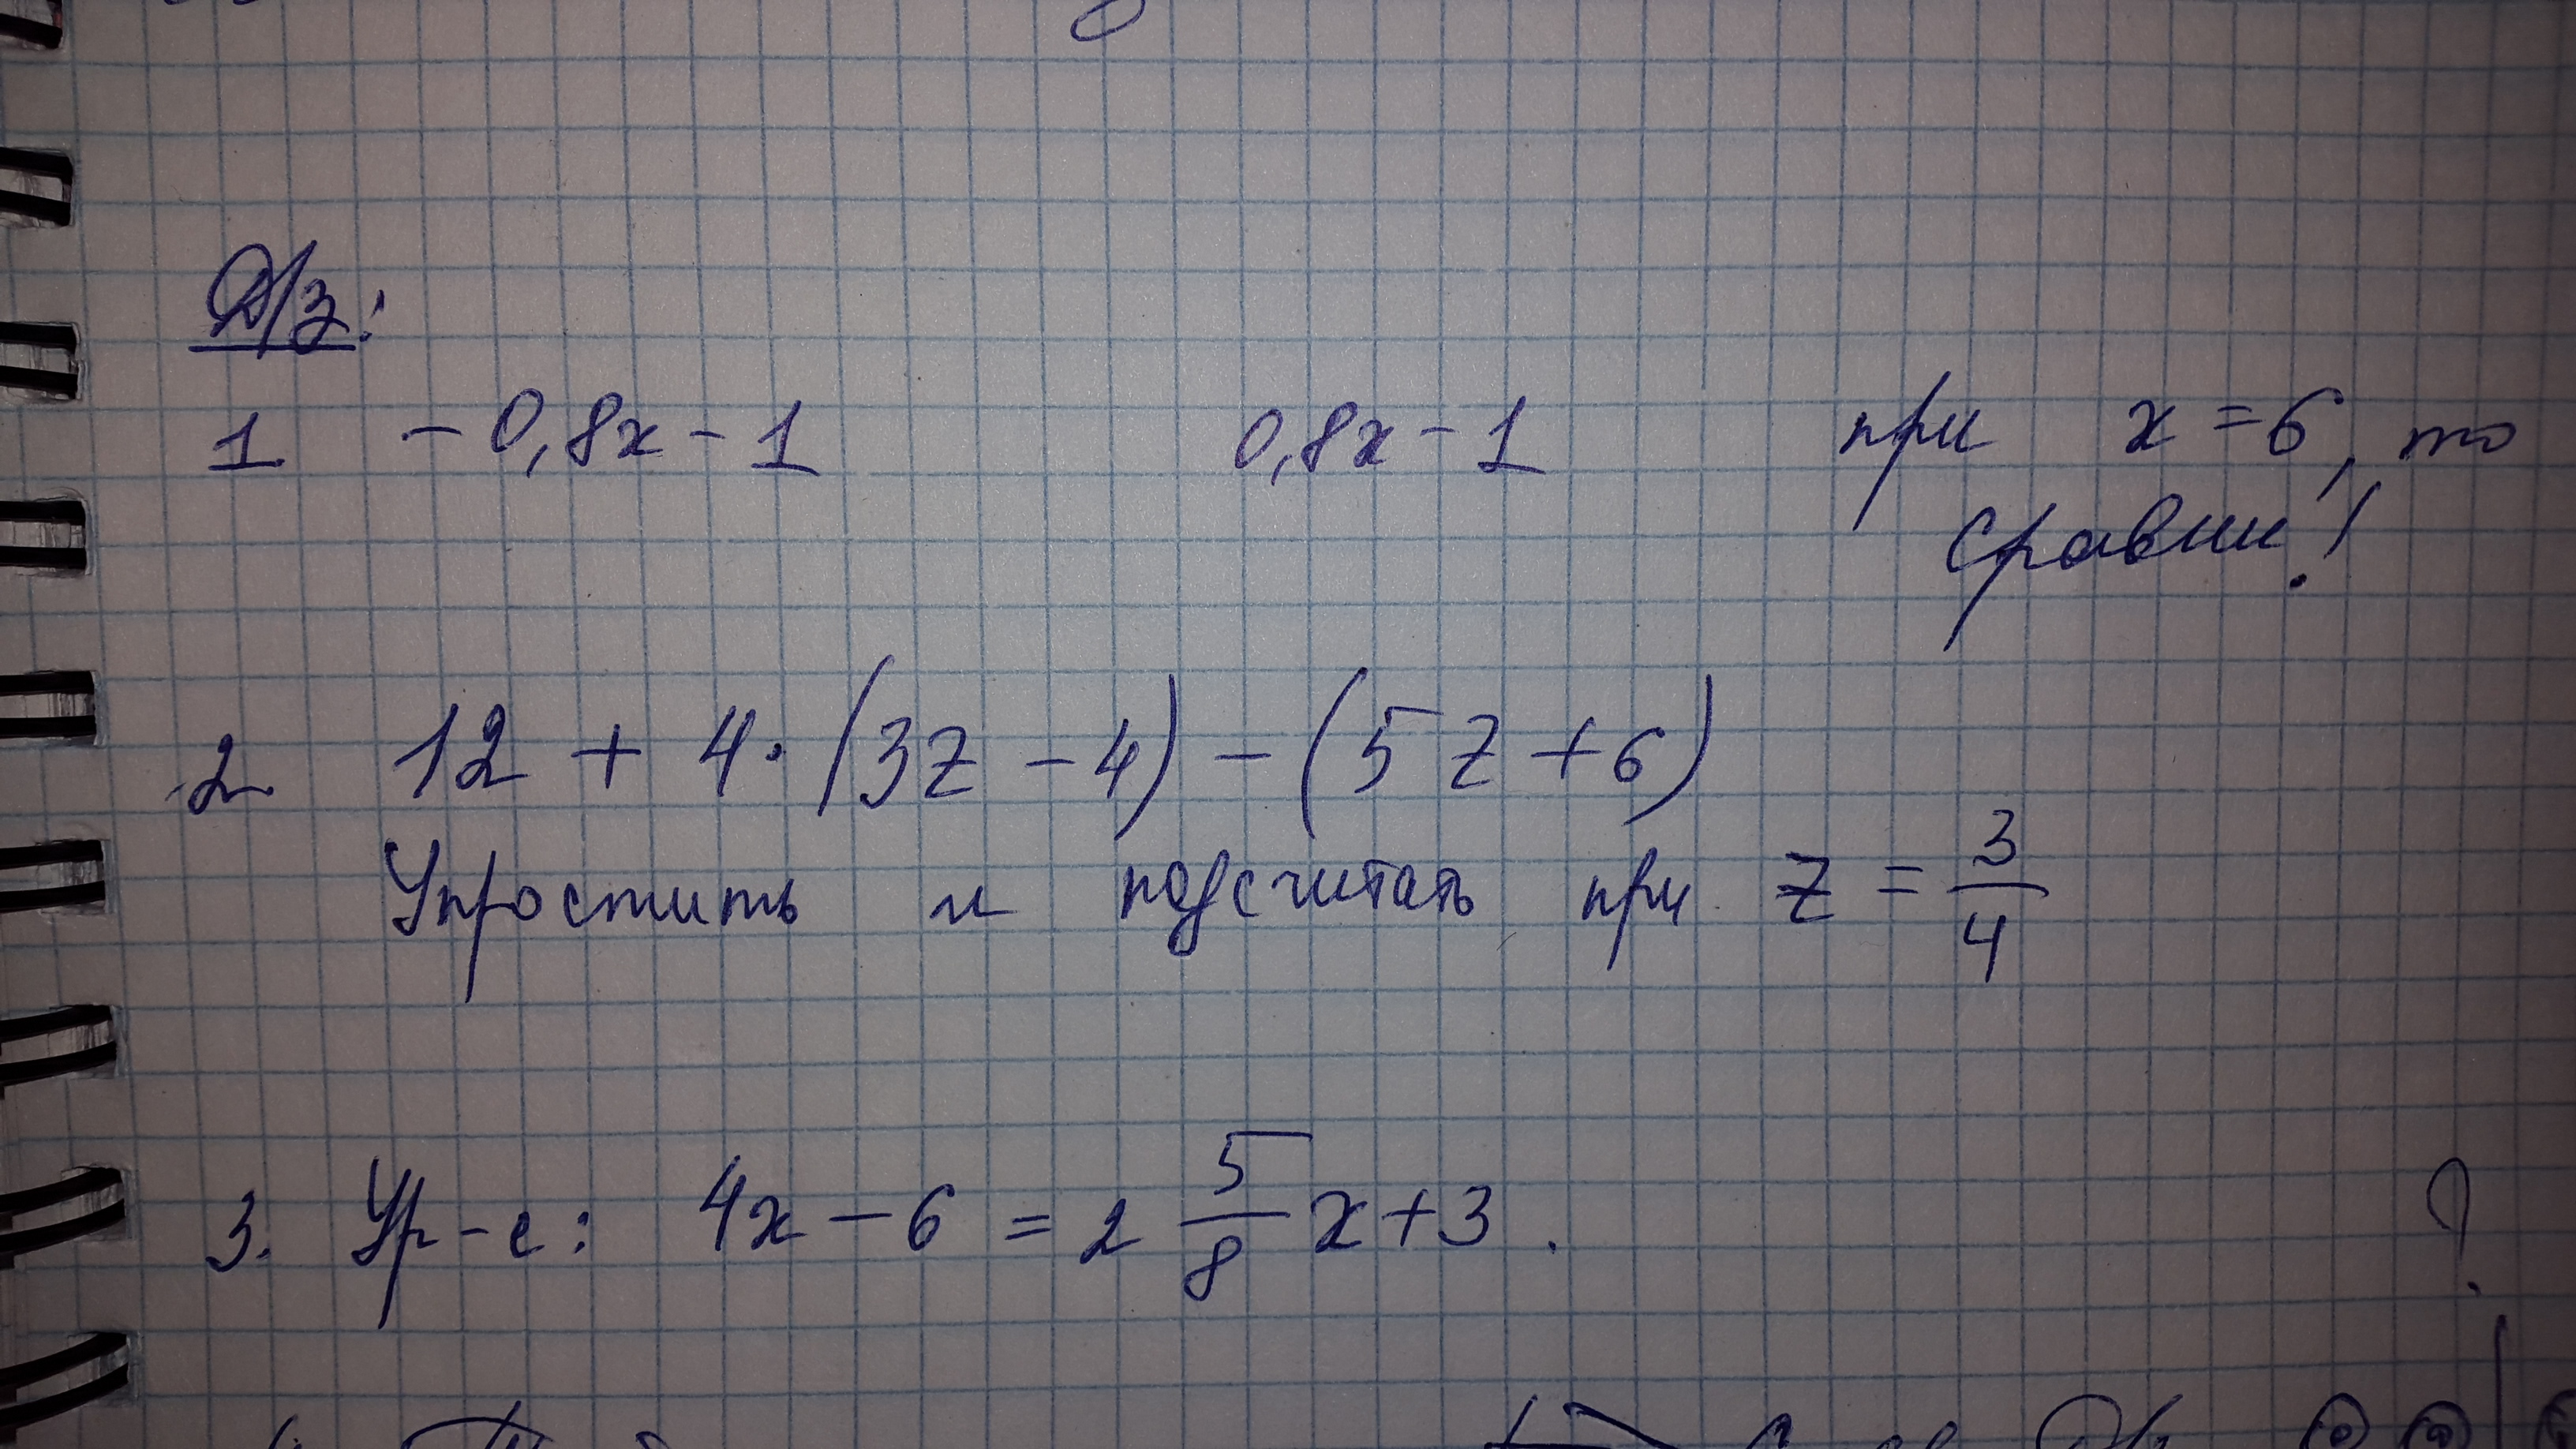 Д/з:
1 - 0,8x - 1 0,8x - 1 при x = 6, то
сравни!
2 12 + 4 · (3z - 4) - (5z + 6)
Упростить и подсчитать при z = 3/4
3. Ур-е: 4x - 6 = 2 5/8 x + 3 . ?